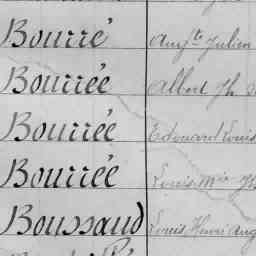 Bourré Aug.te Julien
Bourrée Albert Jh
Bourrée Edouard Louis
Bourrée Louis M.ie Jh
Boussaud Louis Henri Aug